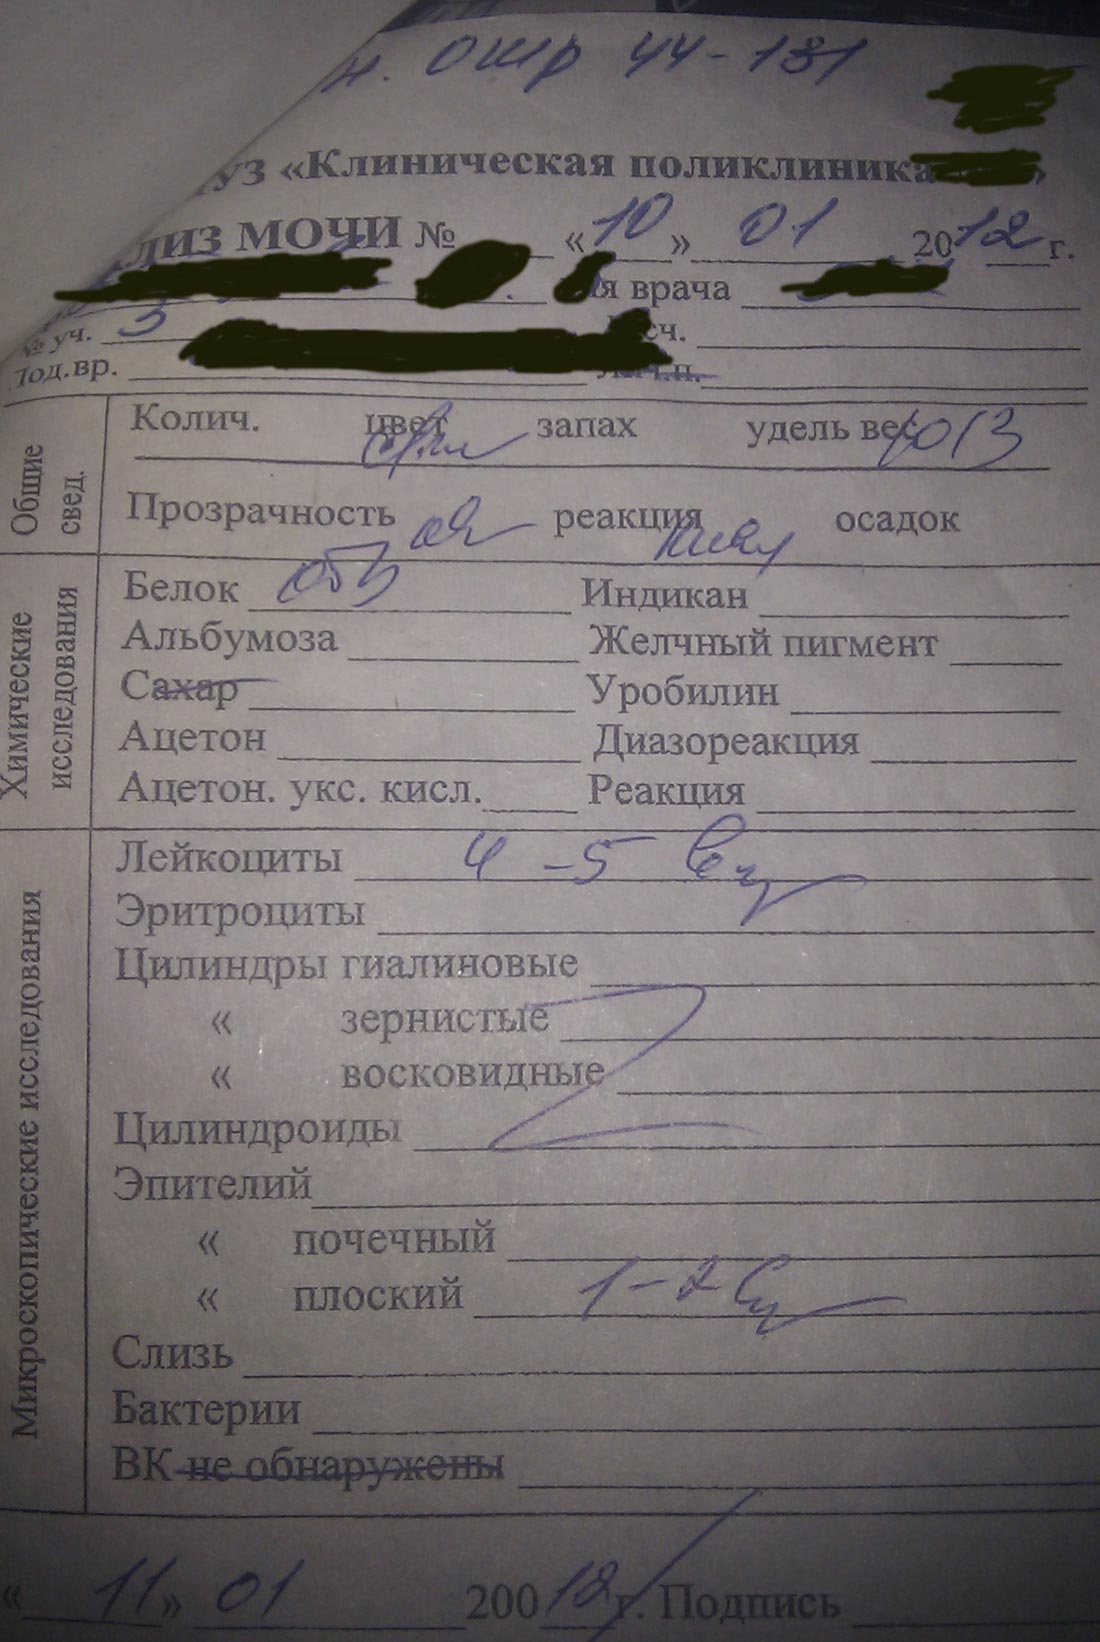 н. ОШР 44-131
УЗ «Клиническая поликлиника
ЛИЗ МОЧИ № «10» 01 2012 г.
я врача
№ уч. 3 сч.
Под.вр.
Общие свед.
Колич. цвет запах удель вес 1013
Прозрачность реакция осадок
Химические исследования
Белок отр Индикан
Альбумоза Желчный пигмент
Сахар Уробилин
Ацетон Диазореакция
Ацетон. укс. кисл. Реакция
Микроскопические исследования
Лейкоциты 4-5
Эритроциты
Цилиндры гиалиновые
« зернистые
« восковидные
Цилиндроиды
Эпителий
« почечный
« плоский 1-2
Слизь
Бактерии
ВК не обнаружены
«11» 01 200 12 г. Подпись